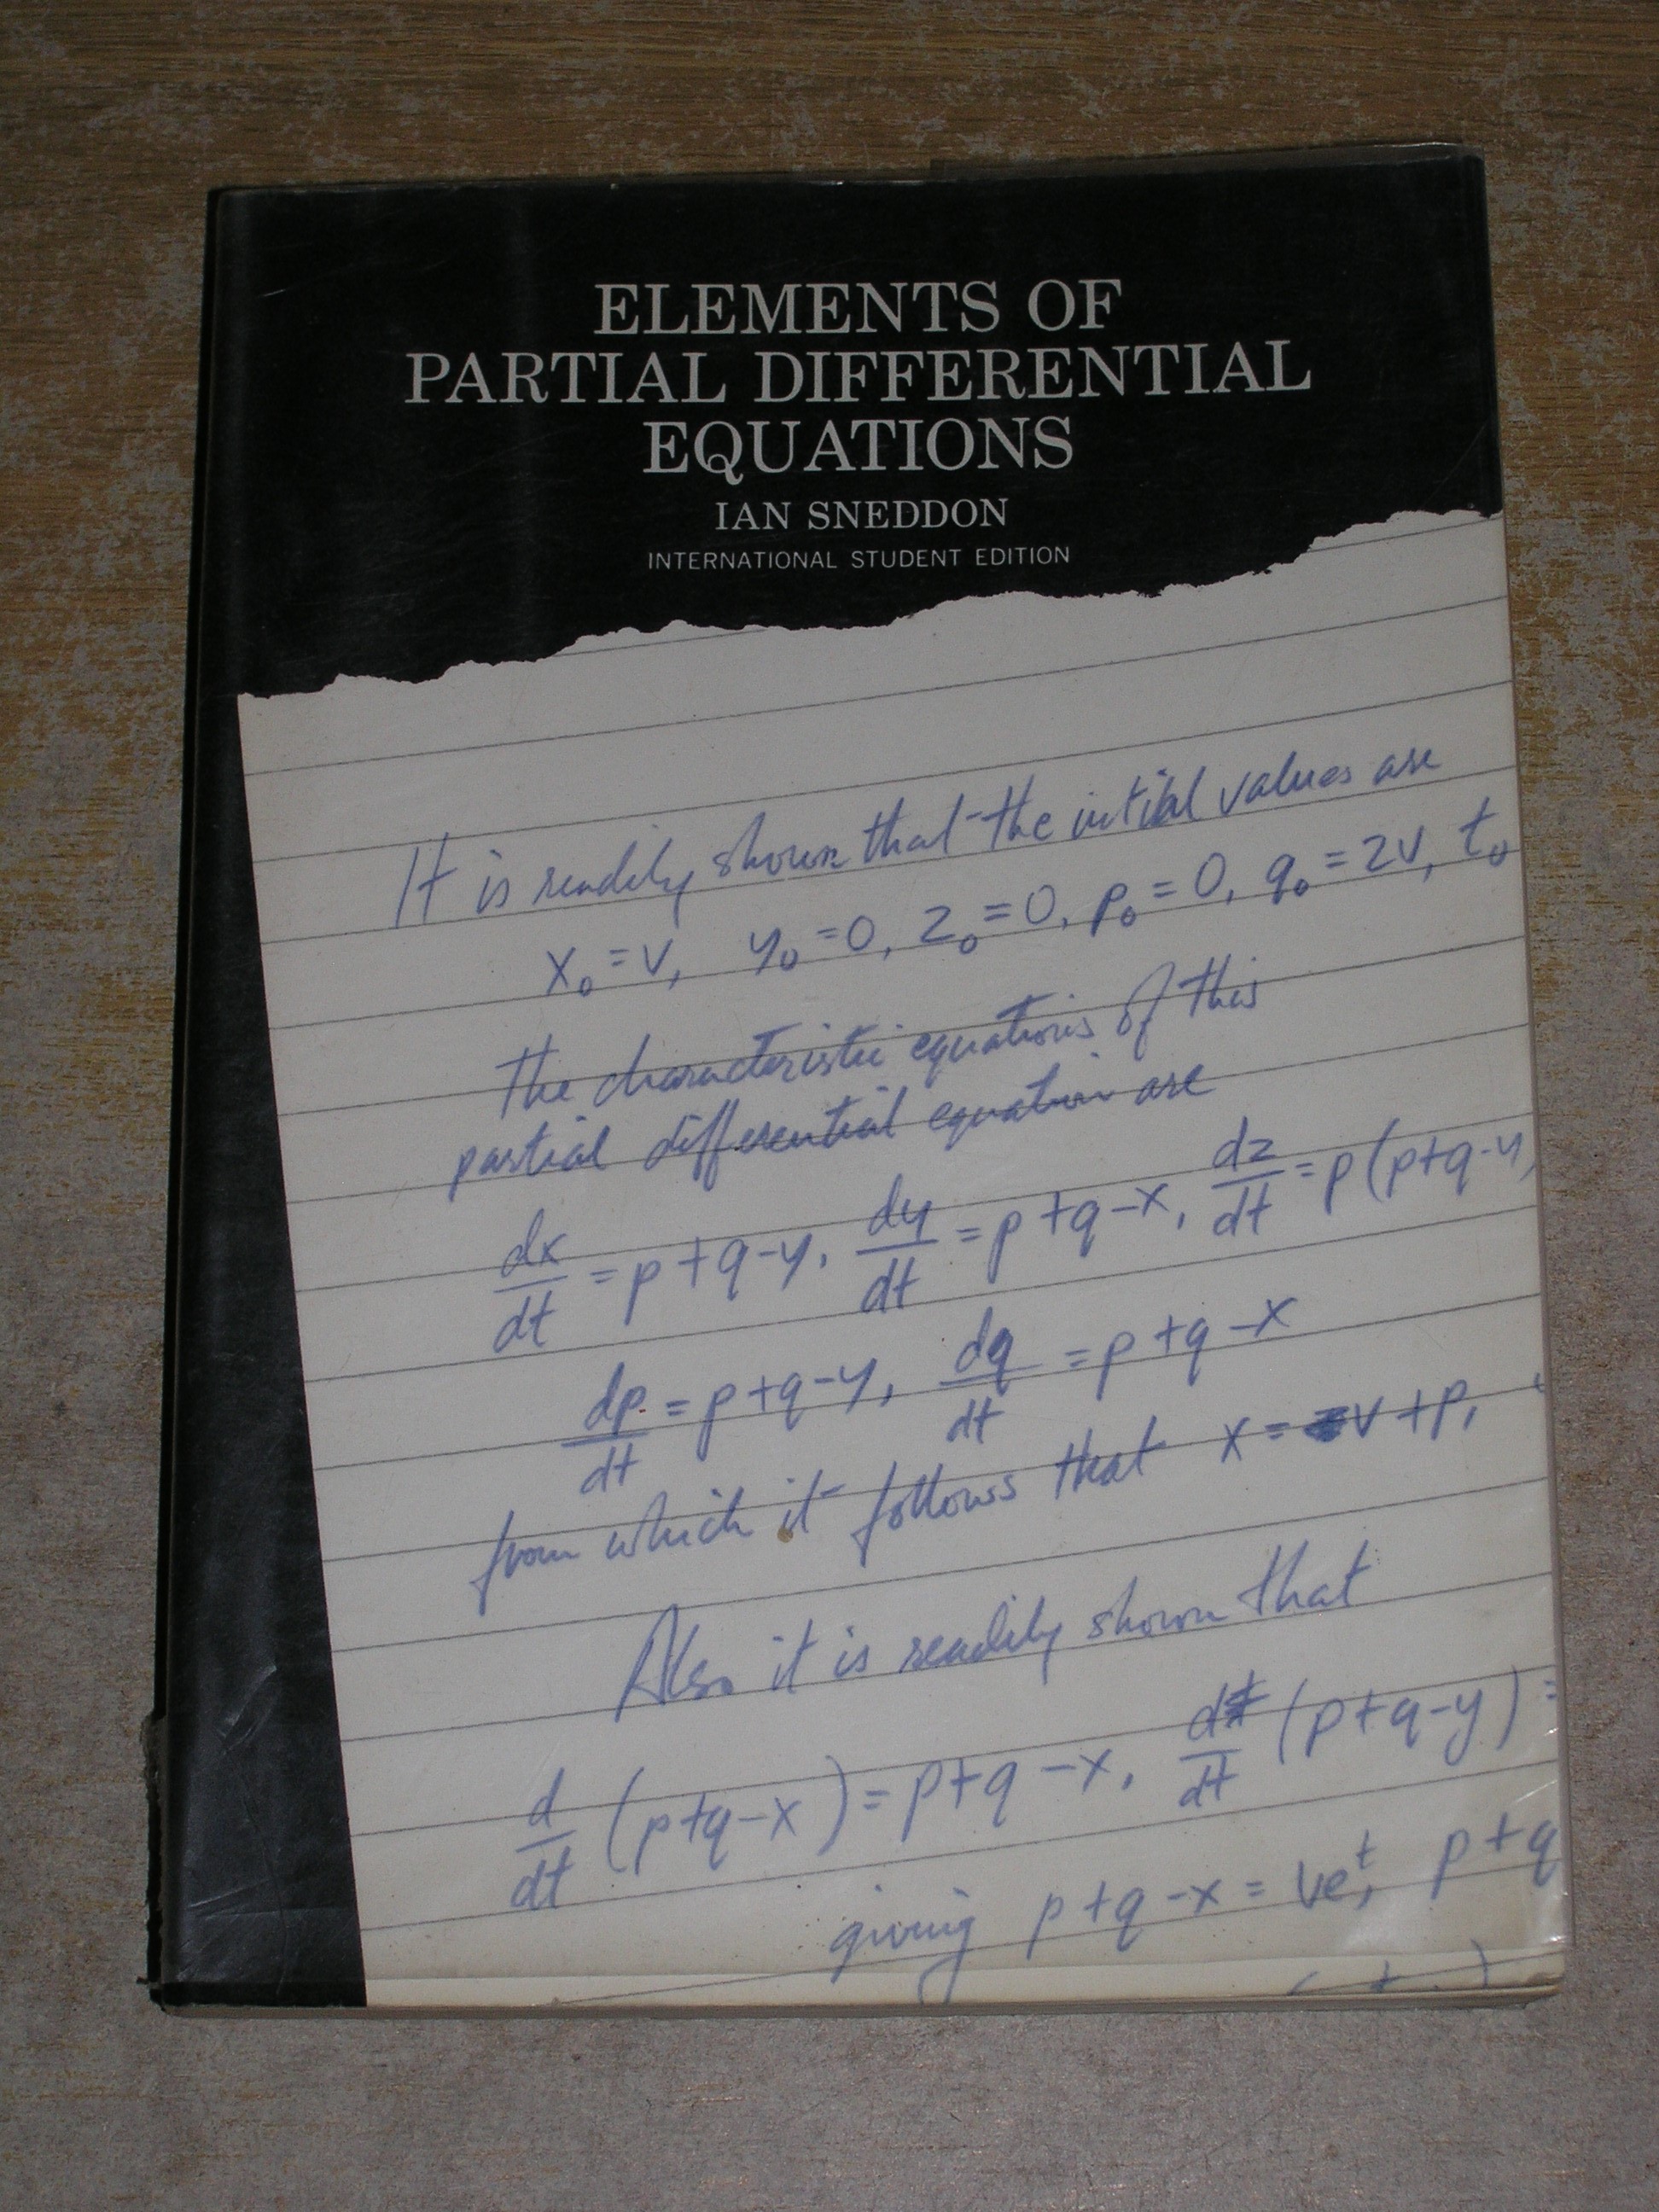 ELEMENTS OF
PARTIAL DIFFERENTIAL
EQUATIONS
IAN SNEDDON
INTERNATIONAL STUDENT EDITION
It is readily shown that the initial values are
x₀ = v, y₀ = 0, z₀ = 0, p₀ = 0, q₀ = 2v, t₀
The characteristic equations of this
partial differential equation are
dx/dt = p+q-y, dy/dt = p+q-x, dz/dt = p(p+q-y)
dp/dt = p+q-y, dq/dt = p+q-x
from which it follows that x = v+p,
Also it is readily shown that
d/dt (p+q-x) = p+q-x, d/dt (p+q-y) =
giving p+q-x = veᵗ, p+q